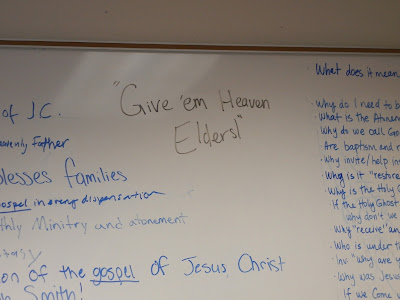 "Give 'em Heaven
Elders!"
of J.C.
avenly Father
blesses families
gospel in every dispensation
thly Ministry and atonement
stasy
on of the gospel of Jesus Christ
h Smith!
What does it mean
Why do I need to b
What is the Atonem
Why do we call Go
Are baptism and r
Why invite/help in
Why is it "restore
Why is the Holy G
If the Holy Ghost
why don't we
Why "receive" an
Who is under th
Inv: "why are y
Why was Jesus
If we Come u